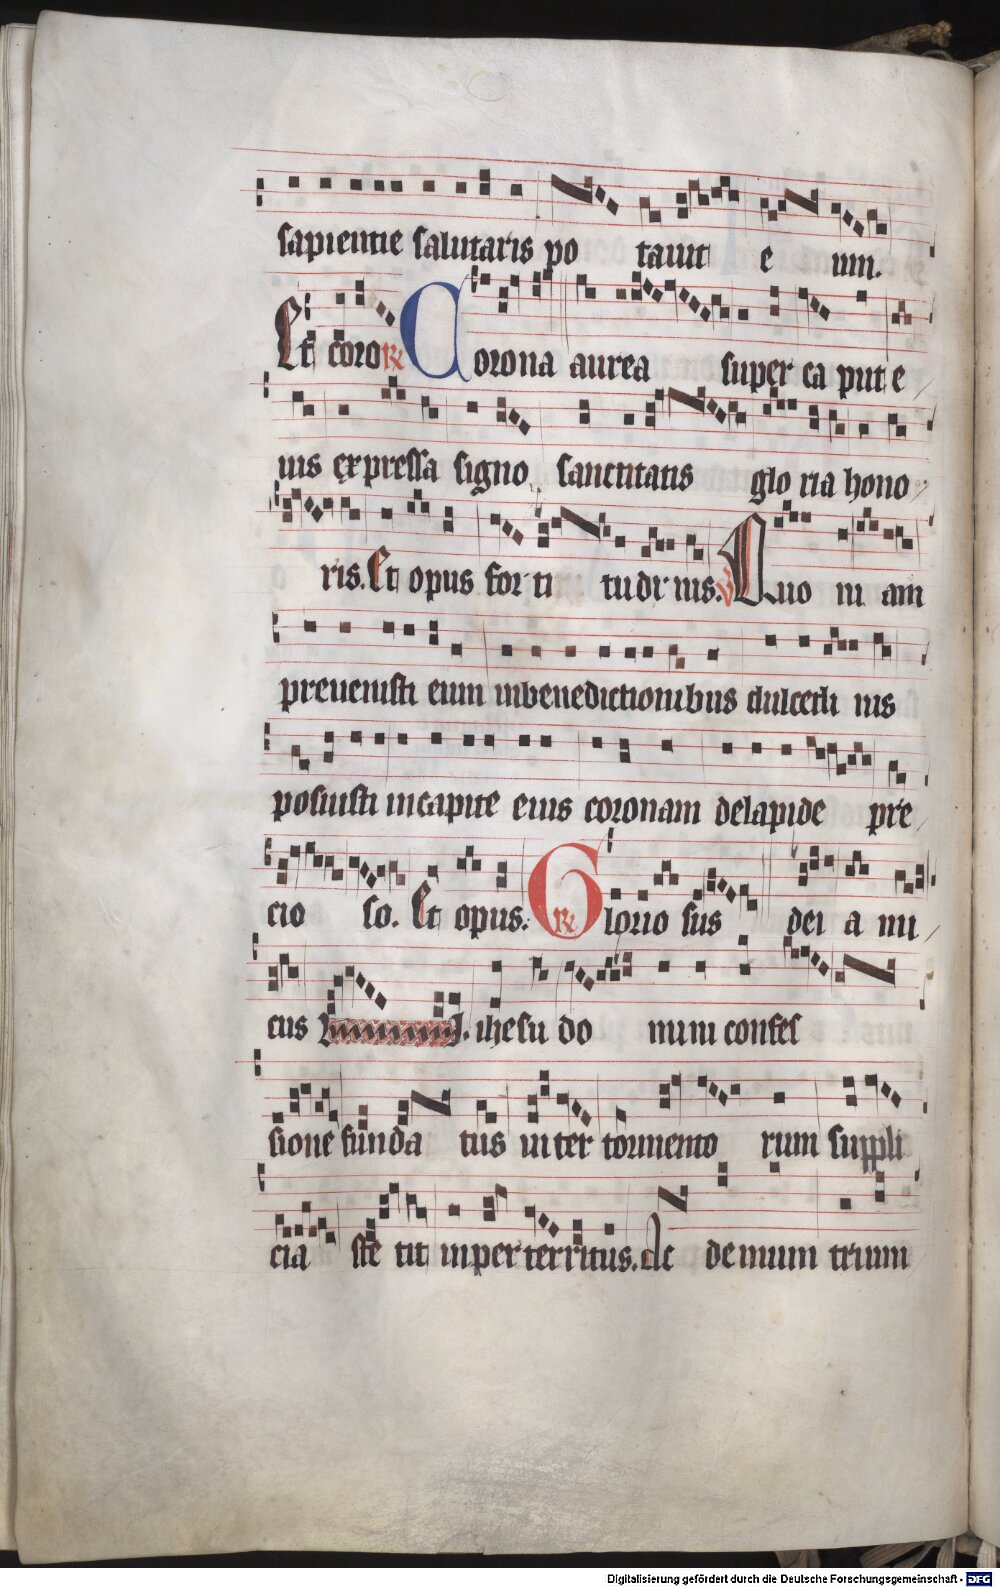 sapientie salutaris po tauit e um.
Et coro ℟ Corona aurea super ca put e
ius expressa signo sanctitatis glo ria hono
ris. Et opus for ti tu di nis. ℣ Quo ni am
preuenisti eum in benedictionibus dulcedi nis
posuisti in capite eius coronam de lapide pre
cio so. Et opus. ℟ Glorio sus dei a mi
cus ihesu do mini confes
sione funda tus in ter tormento rum suppli
cia ste tit inper territus. Ac demum trium
Digitalisierung gefördert durch die Deutsche Forschungsgemeinschaft - DFG